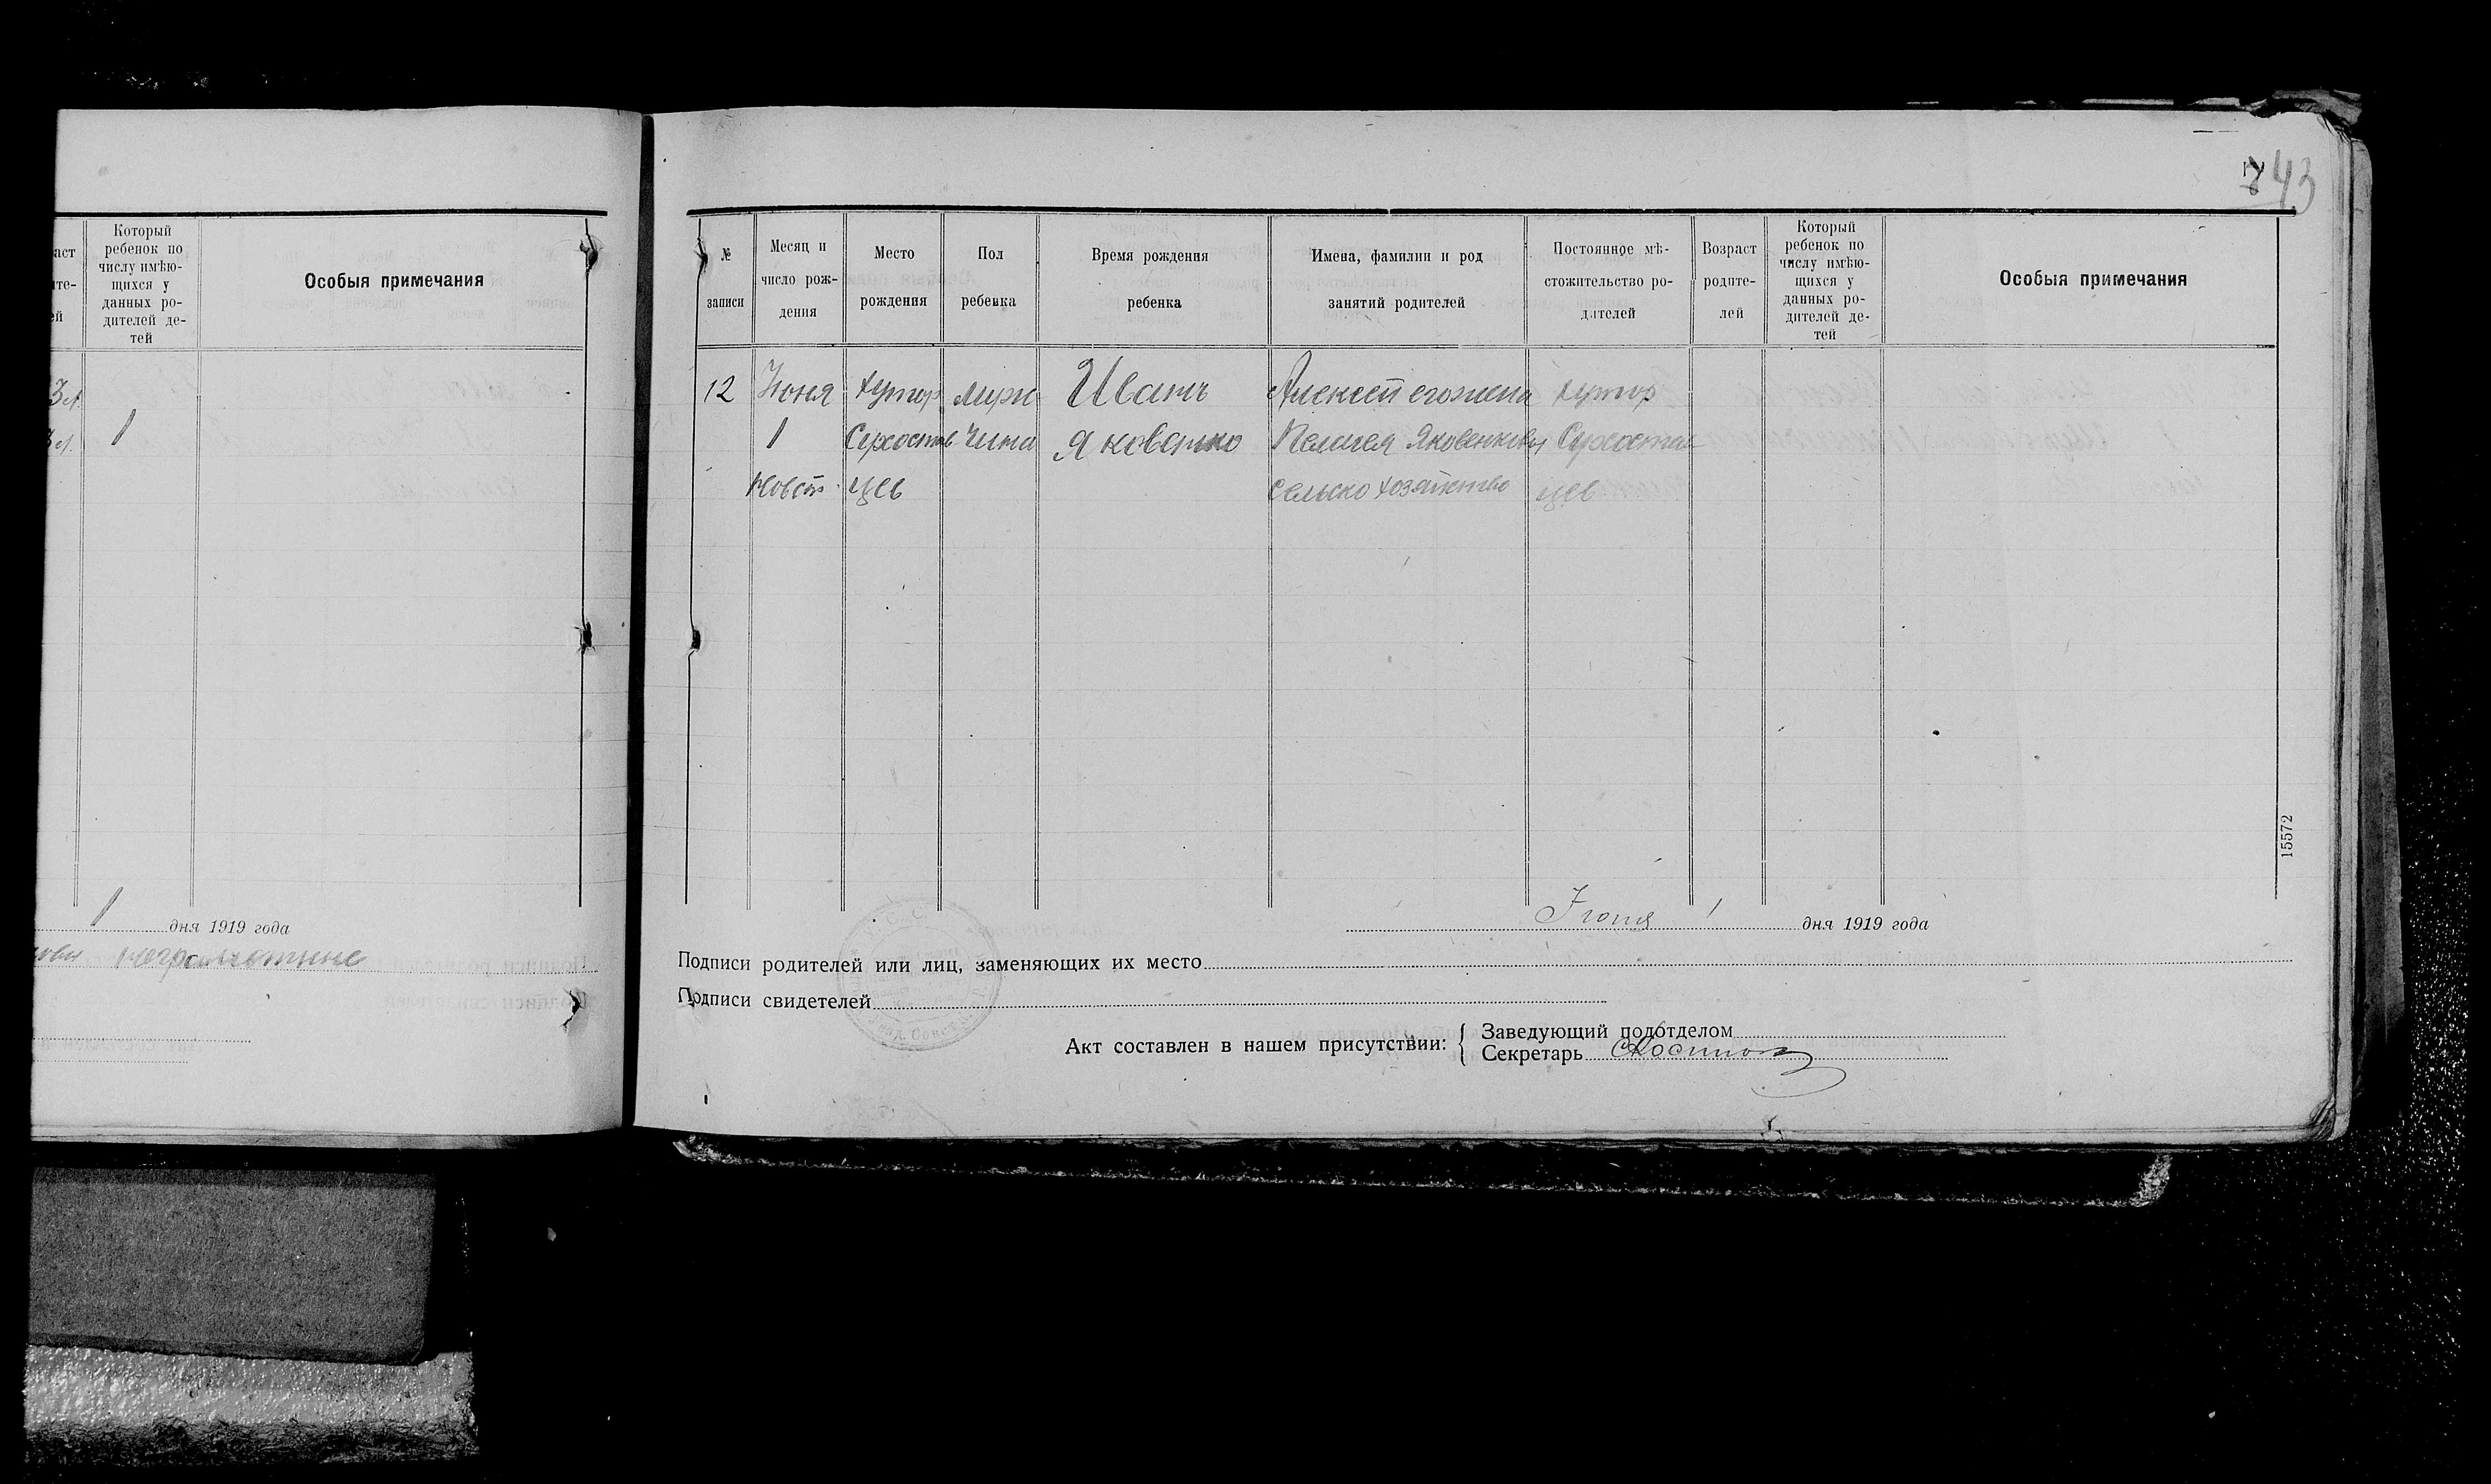 43
аст
те-
ей
Который
ребенок по
числу имѣю-
щихся у
данных ро-
дителей де-
тей
Особыя примечания
3 л.
3 л.
1
1
дня 1919 года
неграмотные
№
записи
Месяц и
число рож-
дения
Место
рождения
Пол
ребенка
Время рождения
ребенка
Имена, фамилии и род
занятий родителей
Постоянное мѣ-
стожительство ро-
дителей
Возраст
родите-
лей
Который
ребенок по
числу имѣю-
щихся у
данных ро-
дителей де-
тей
Особыя примечания
12 Июня хутор муж Иванъ Алексей его жена хутор
1 Сухостав чина Яковенко Пелагея Яковенковы Сухостав
цев сельско хозяйство цев
15572
Июня 1 дня 1919 года
Подписи родителей или лиц, заменяющих их место
Подписи свидетелей
Акт составлен в нашем присутствии:
Заведующий подотделом
Секретарь